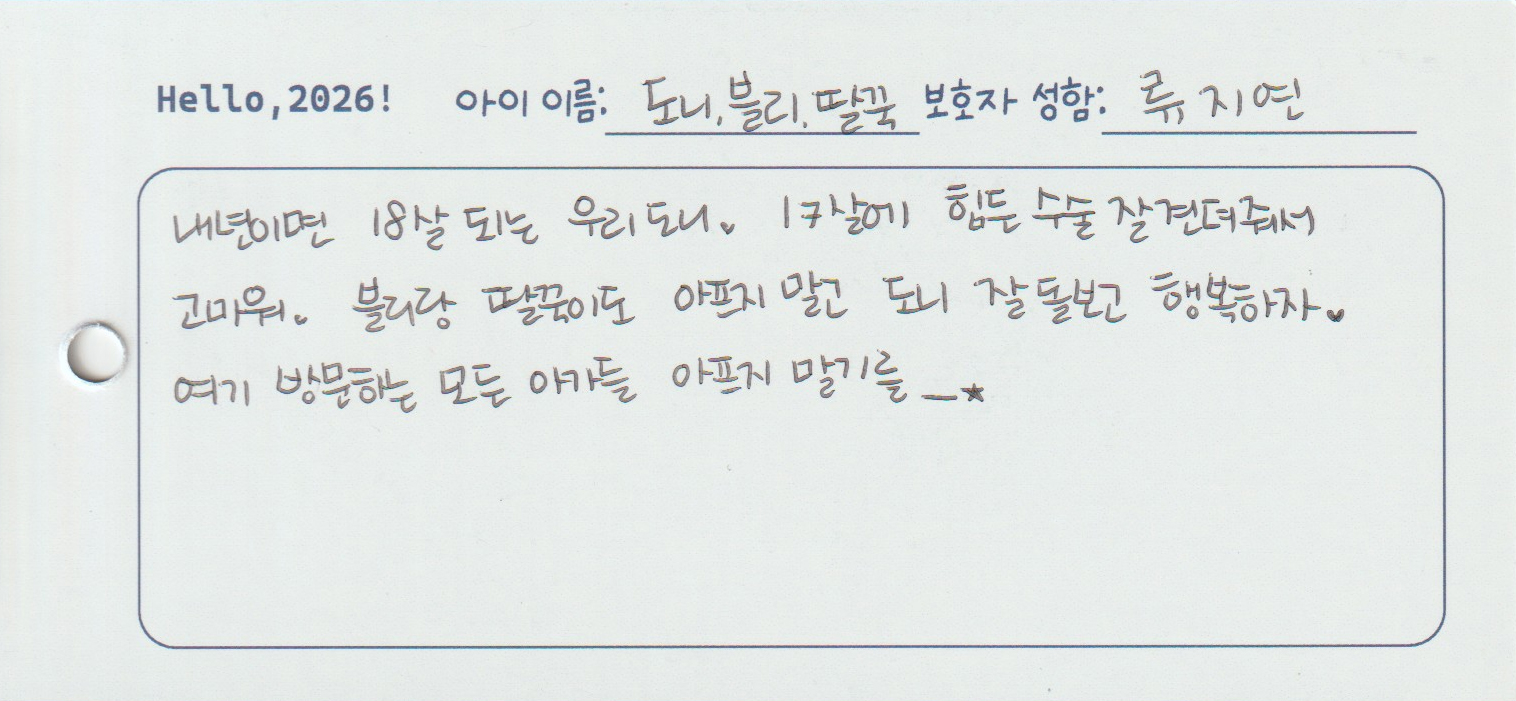 Hello,2026! 아이 이름: 도니,블리,딸꾹 보호자 성함: 류지연
내년이면 18살 되는 우리 도니. 17살에 힘든 수술 잘 견뎌줘서
고마워. 블리랑 딸꾹이도 아프지 말고 도니 잘 돌보고 행복하자.♥
여기 방문하는 모든 아가들 아프지 말기를_★